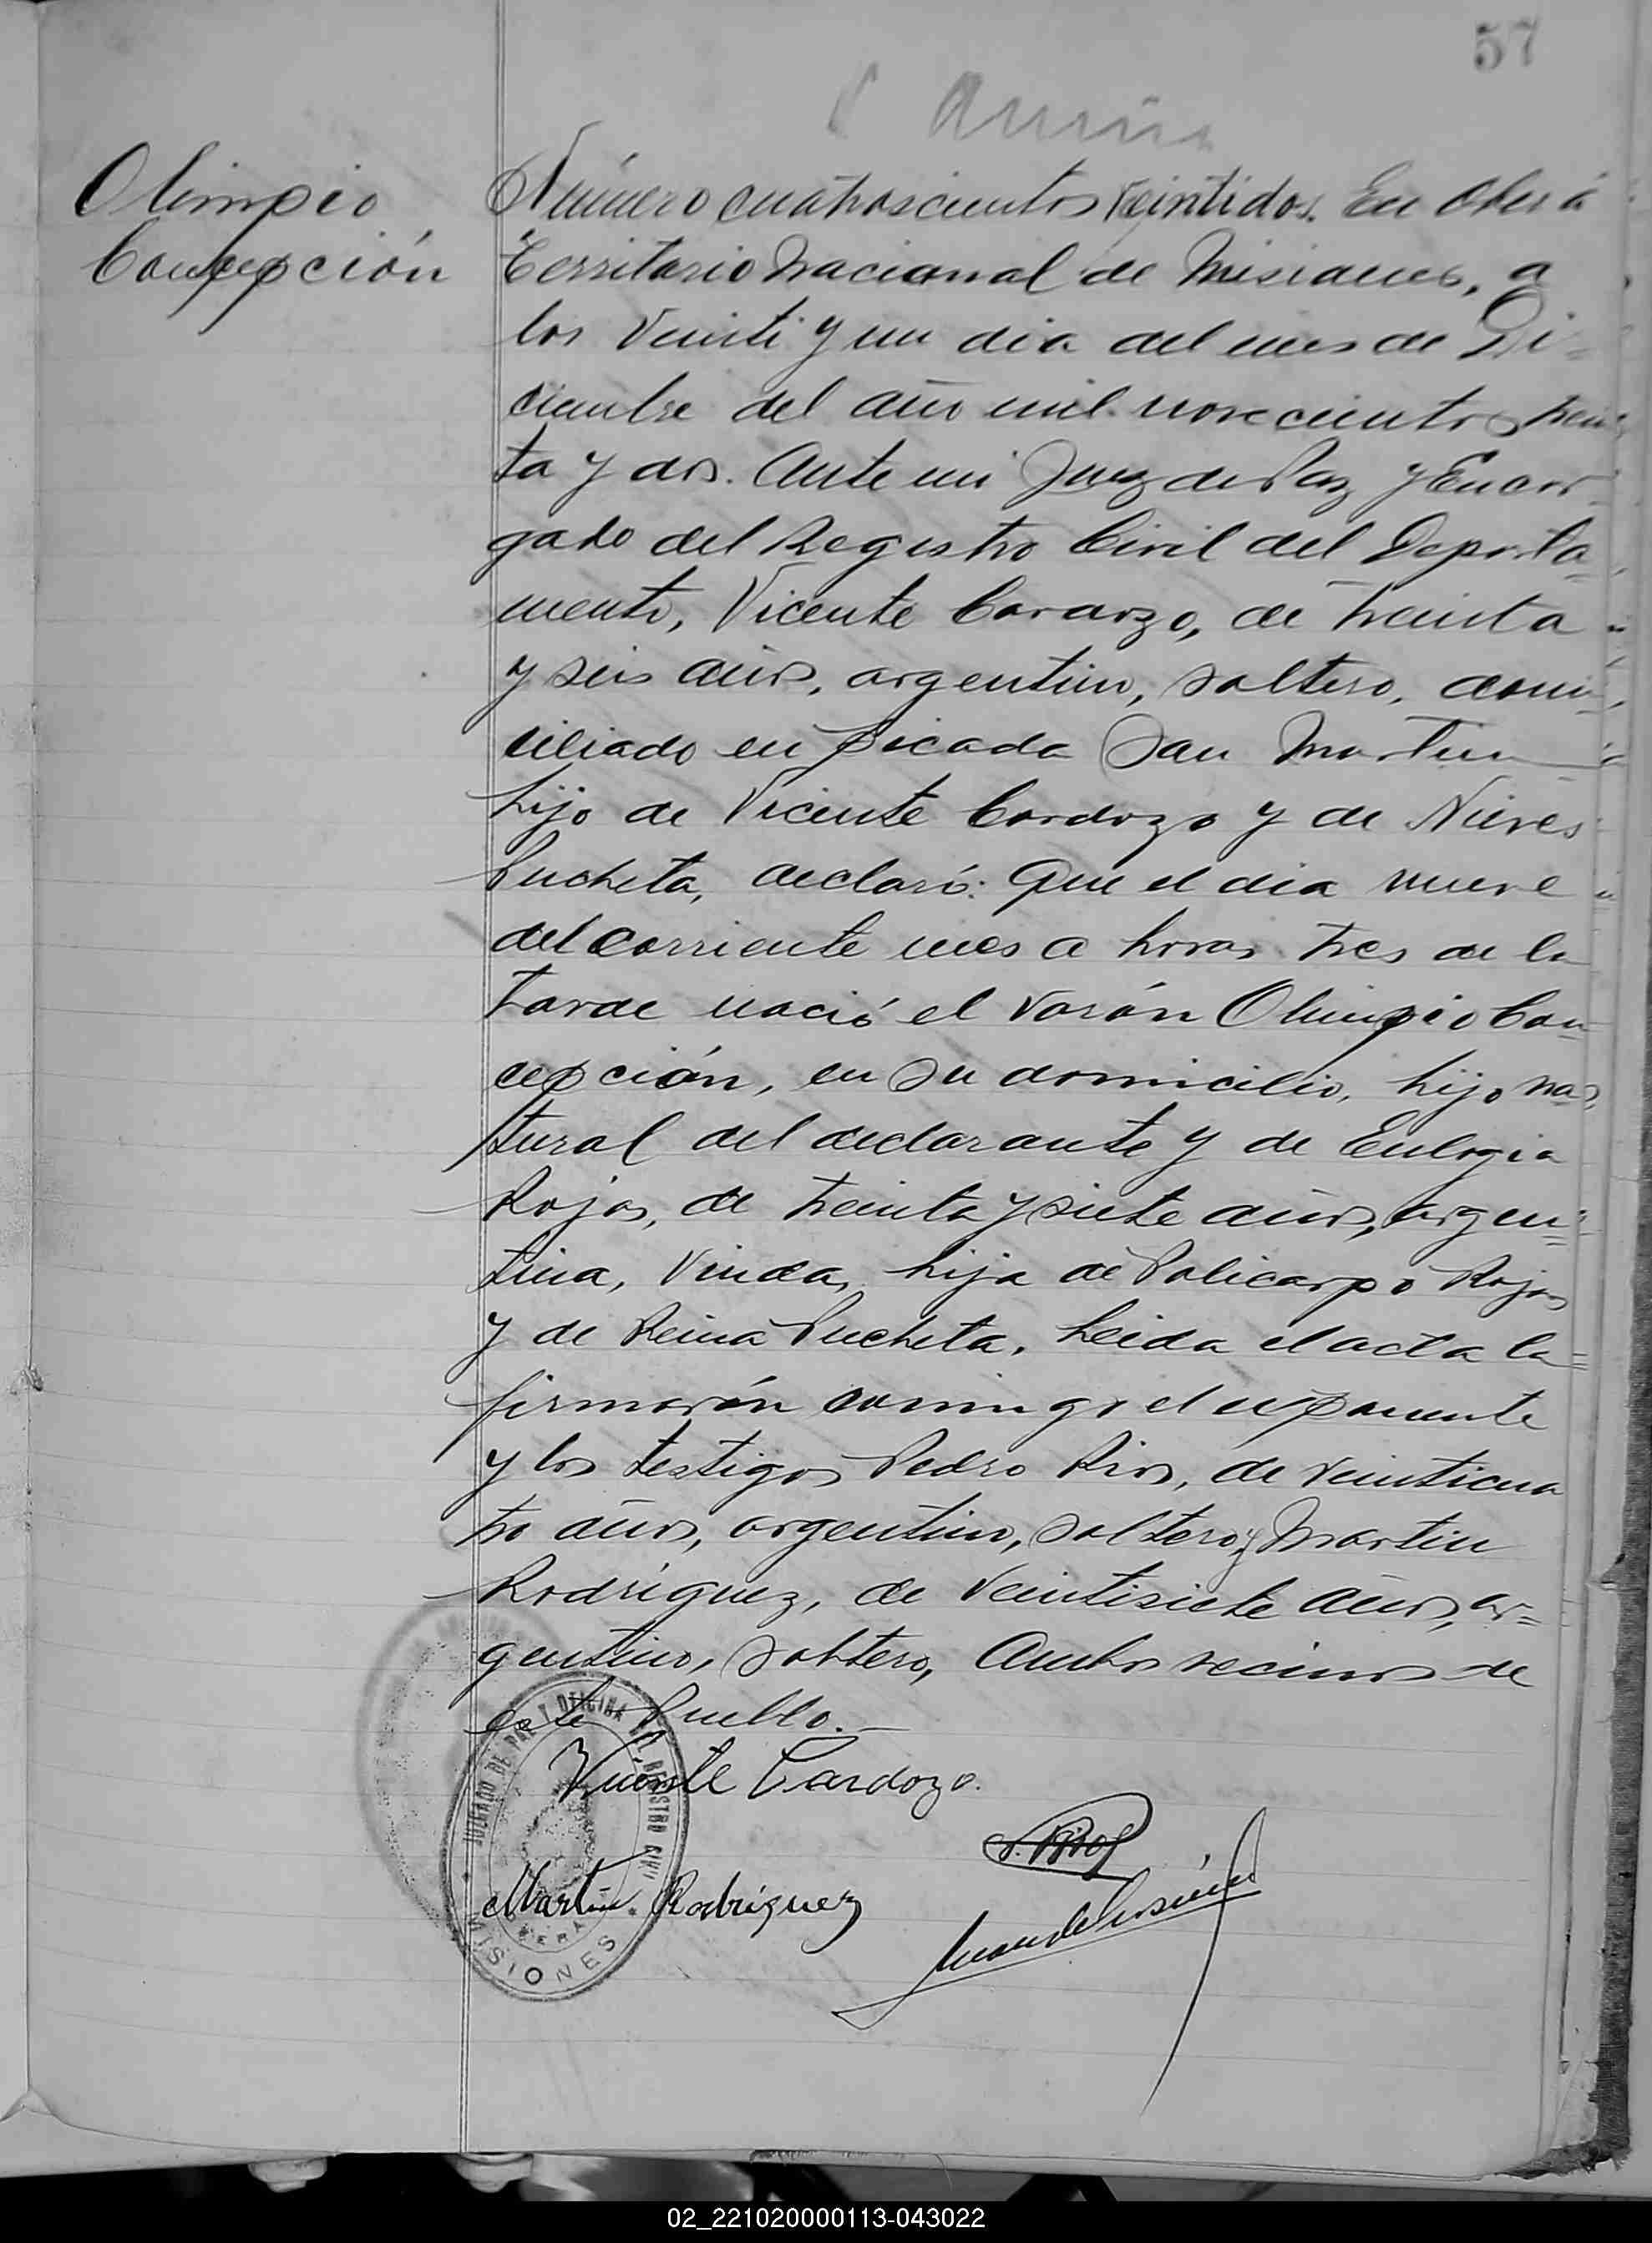 57
Olimpio
Concepción
Número cuatroscientos veintidos. En Oberá
Territorio Nacional de Misiones, a
los veinti y un dia del mes de Di-
ciembre del año mil novecientos trein
ta y dos. Ante mi Juez de Paz y Encar-
gado del Registro Civil del Departa-
mento, Vicente Cardozo, de treinta
y seis años, argentino, soltero, domi-
ciliado en picada San Martin
hijo de Vicente Cardozo y de Nieves
Pucheta, declaró: Que el dia nueve
del corriente mes a horas tres de la
tarde nació el varón Olimpio Con-
cepción, en su domicilio, hijo na-
tural del declarante y de Eulogia
Rojas, de treinta y siete años, argen=
tina, viuda, hija de Policarpo Rojas
y de Reina Pucheta. Leida el acta la=
firmarón conmigo el exponente
y los testigos Pedro Rios, de veinticua
tro años, argentino, soltero y Martin
Rodríguez, de veintisiete años, ar=
gentino, soltero, ambos vecinos de
este Pueblo.-
Vicente Cardozo.
P. Rios
Martin Rodríguez
JUZGADO DE PAZ Y OFICINA DEL REGISTRO CIVIL
OBERA
MISIONES
02_221020000113-043022